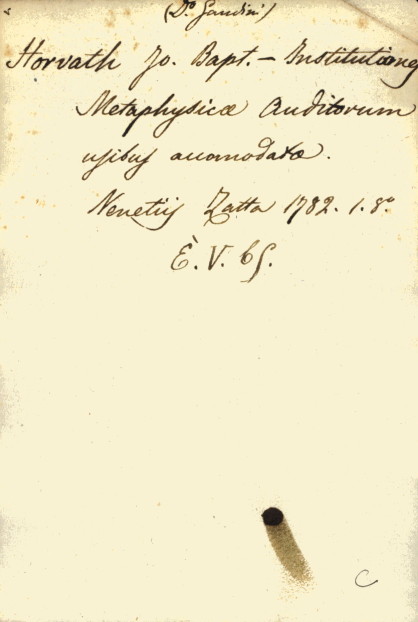 (Do. Gaudini)
Horvath Jo. Bapt. – Institutiones
Metaphysicæ Auditorum
usibus accomodatæ.
Venetiis Zatta 1782. 1. 8º
È. V. 65.
C